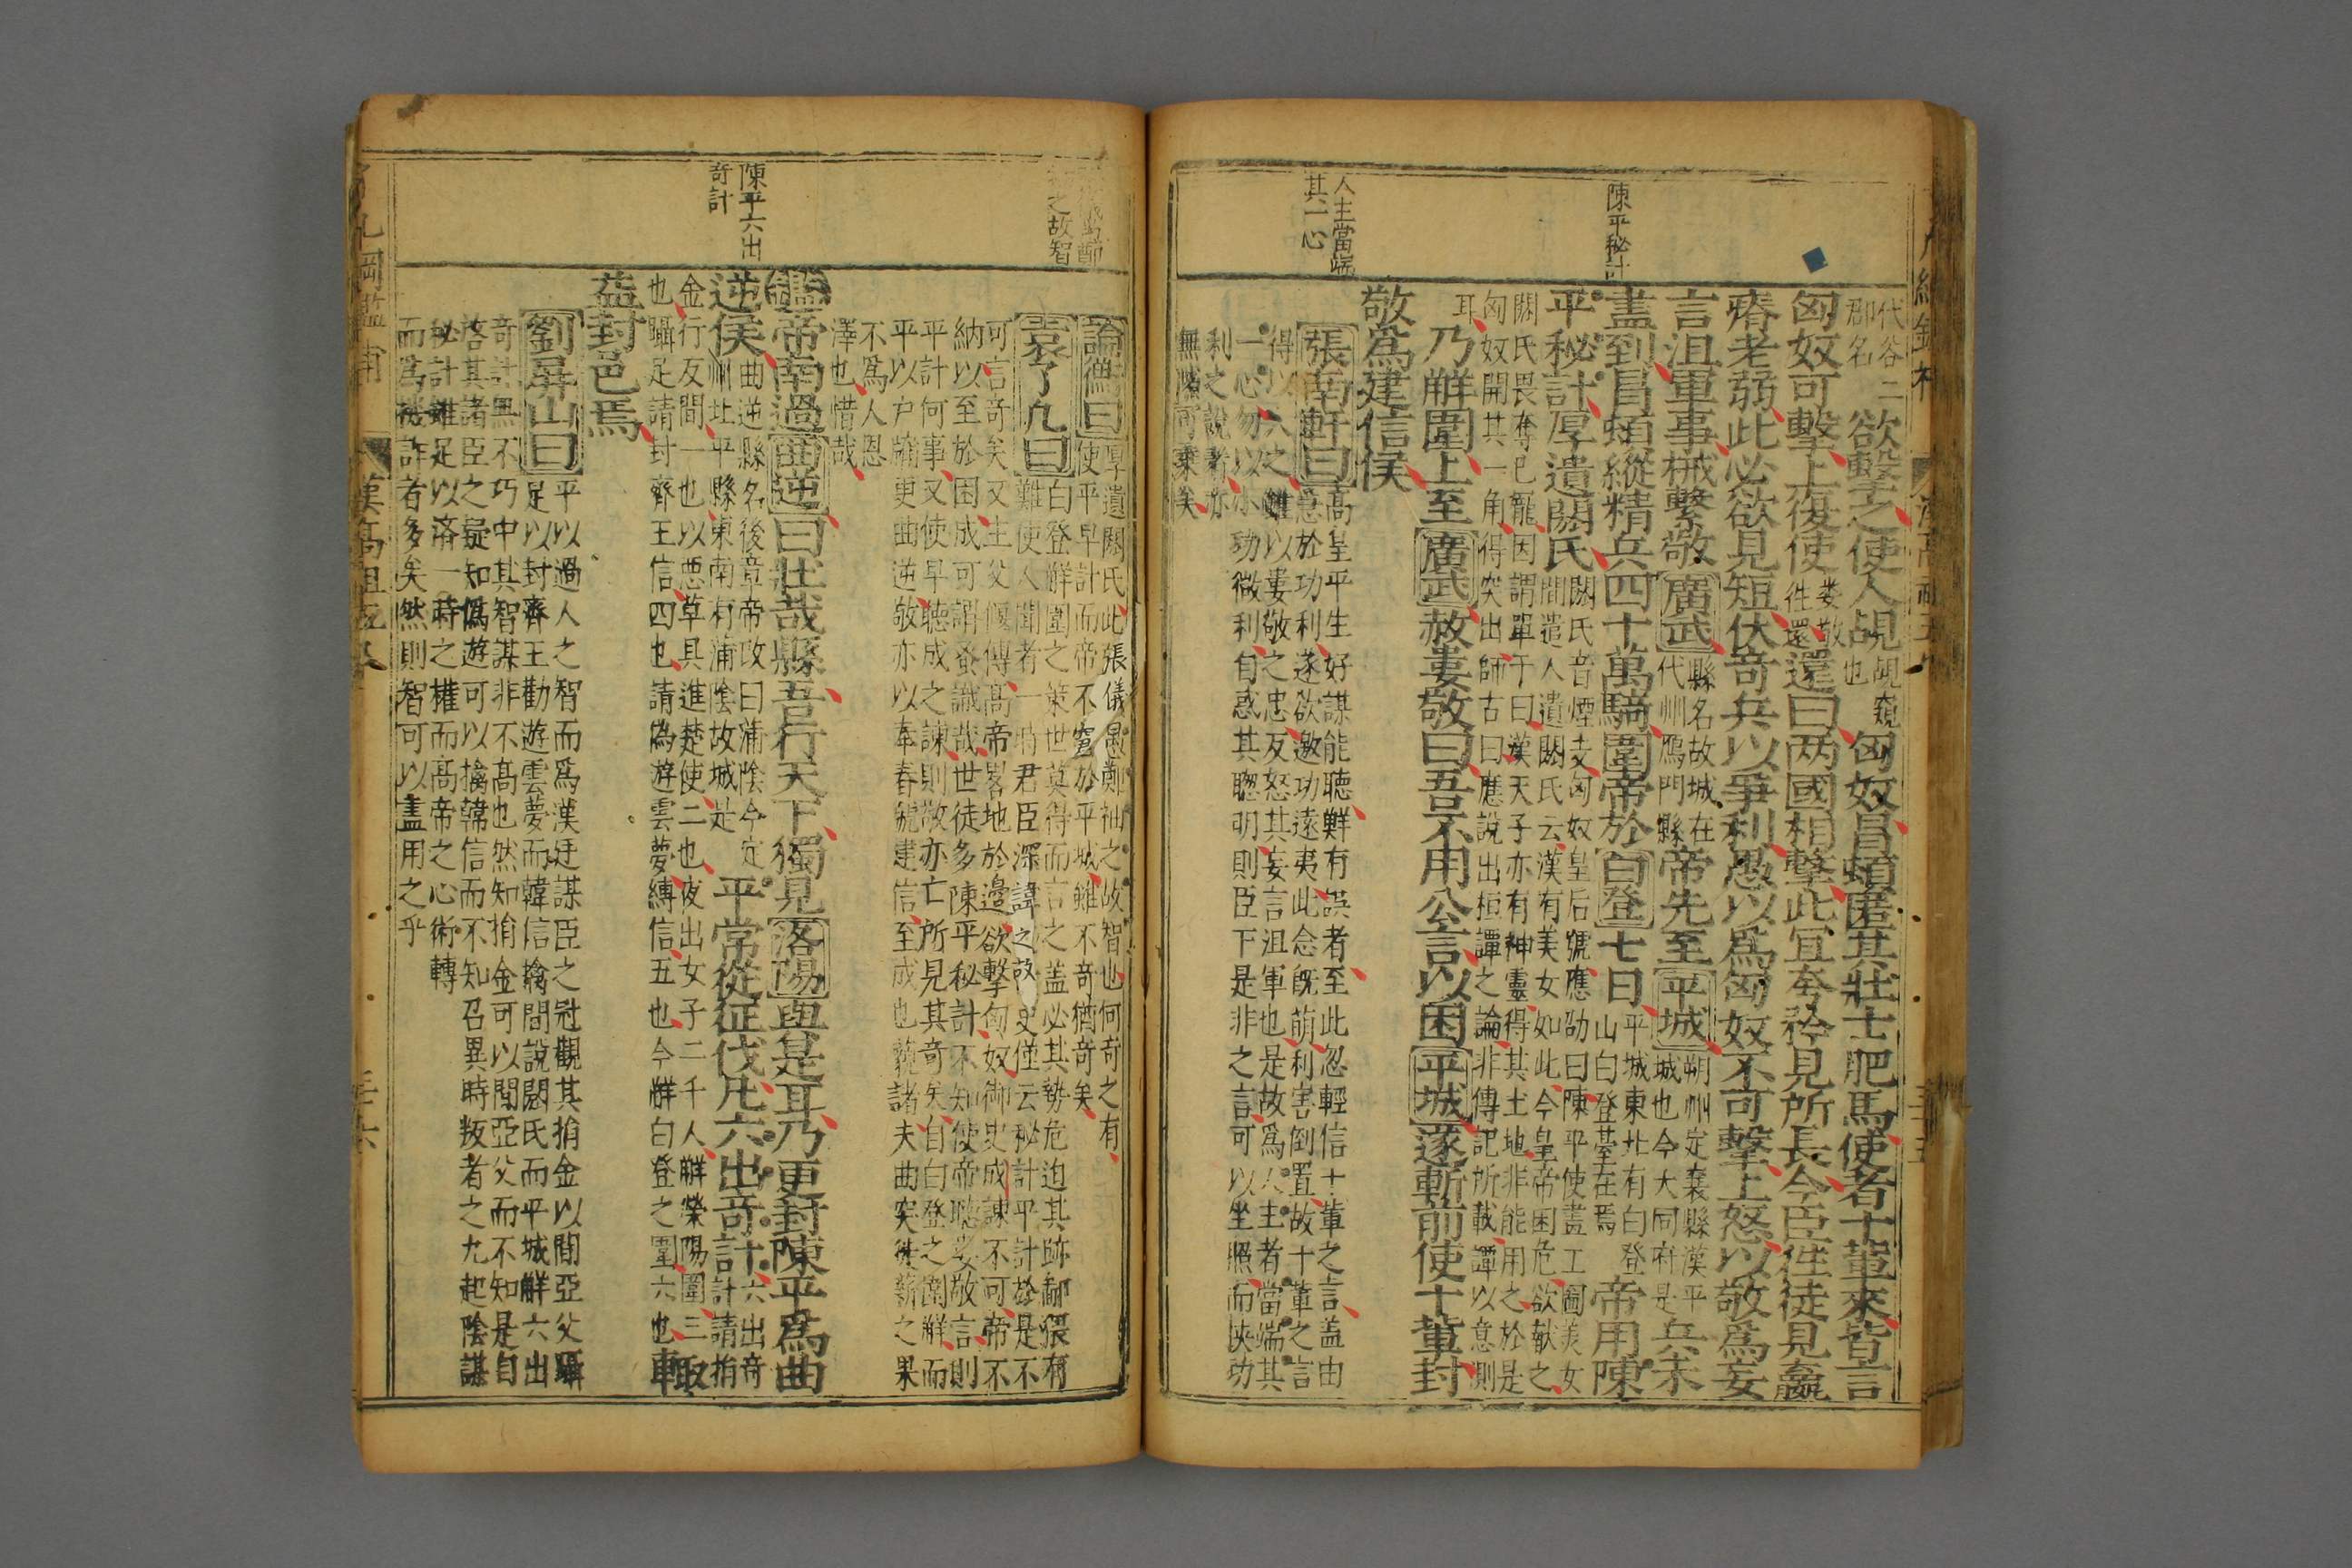 陳平秘計
人主當端
其一心
代谷二
郡名
欲擊之使人覘
覘窺
也
匈奴冒頓匿其壯士肥馬使者十輩來皆言
匈奴可擊上復使
婁敬
徃還
還曰两國相擊此宜夸矜見所長今臣徃徒見羸
瘠老弱此必欲見短伏奇兵以爭利愚以為匈奴不可擊上怒以敬為妄
言沮軍事械繫敬廣武
縣名故城在
代州鴈門縣
帝先至平城
朔州定襄縣漢平
城也今大同府是
兵未
盡到冒頓縱精兵四十萬騎圍帝於白登七日
平城東北有白登
山白登臺在焉
帝用陳
平秘計厚遺閼氏
閼氏音煙支匈奴皇后號應劭曰陳平使畫工圖美女
間遣人遺閼氏云漢有美女如此今皇帝困危欲献之
閼氏畏奪已寵因謂單于曰漢天子亦有神靈得其土地非能用之於是
匈奴開其一角得突出師古曰應說出桓譚之論非傳記所載譚以意測
耳
乃解圍上至廣武赦婁敬曰吾不用公言以困平城遂斬前使十輩封
敬為建信侯
張南軒曰
高皇平生好謀能聽鮮有誤者至此忽輕信十輩之言盖由
急於功利遂欲邀功遠夷此念旣萌利害倒置故十輩之言
得以入之雖以婁敬之忠反怒其妄言沮軍也是故為人主者當端其
一心勿以小功微利自惑其聰明則臣下是非之言可以坐照而陜功
利之說者亦
無隙可乘矣
之故智
陳平六出
奇計
論斷曰
厚遺閼氏此張儀愚鄭袖之故智也何奇之有
使平早計而帝不窘於平城雖不奇猶奇矣
袁了凡曰
白登解圍之策世莫得而言之盖必其勢危迫其跡鄙猥有
難使人聞者一時君臣深諱之故史僅云秘計平計於是不
可言奇矣又主父偃傳高帝畧地於邊欲擊匈奴御史成諫不可帝不
納以至於困成可謂蚤識哉世徒多陳平秘計不知使帝聽婁敬言則
平計何事又使早聽成之諫則敬亦亡所見其奇矣自白登之圍解而
平以户牖更曲逆敬亦以奉春號建信至成也蔑諸夫曲突徙薪之果
不為人恩
澤也惜哉
鑑帝南過曲逆曰壯哉縣吾行天下獨見洛陽與是耳乃更封陳平為曲
逆侯
曲逆縣名後章帝改曰蒲陰今定
州北平縣東南有蒲陰故城是
平常從征伐凡六出奇計
六出奇
計請捐
金行反間一也以惡草具進楚使二也夜出女子二千人解滎陽圍三
也躡足請封齊王信四也請偽遊雲夢縛信五也今解白登之圍六也
益封邑焉
劉屏山曰
平以過人之智而為漢廷謀臣之冠觀其捐金以間亞父躡
足以封齊王勸遊雲夢而韓信擒間說閼氏而平城解六出
奇計無不巧中其智謀非不高也然知捐金可以間亞父而不知是自
啓其諸臣之疑知偽遊可以擒韓信而不知召異時叛者之九起陰謀
秘計雖足以済一時之權而高帝之心術轉
而為機詐者多矣然則智可以盡用之乎